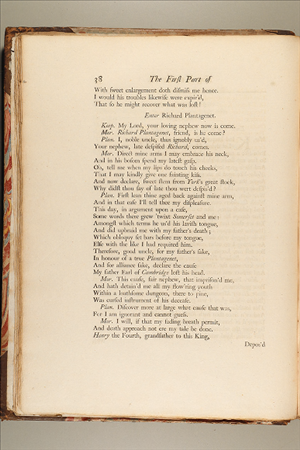 38 The First Part of
With sweet enlargement doth dismiss me hence.
I would his troubles likewise were expir'd,
That so he might recover what was lost!
Enter Richard Plantagenet.
Keep. My Lord, your loving nephew now is come.
Mor. Richard Plantagenet, friend, is he come?
Plan. I, noble uncle, thus ignobly us'd,
Your nephew, late despised Richard, comes.
Mor. Direct mine arms I may embrace his neck,
And in his bosom spend my latest gasp.
Oh, tell me when my lips do touch his cheeks,
That I may kindly give one fainting kiss.
And now declare, sweet stem from York's great stock,
Why didst thou say of late thou wert despis'd?
Plan. First lean thine aged back against mine arm,
And in that ease I'll tell thee my disease.
This day, in argument upon a case,
Some words there grew 'twixt Somerset and me:
Amongst which terms he us'd his lavish tongue,
And did upbraid me with my father's death;
Which obloquy set bars before my tongue,
Else with the like I had requited him.
Therefore, good uncle, for my father's sake,
In honour of a true Plantagenet,
And for alliance sake, declare the cause
My father Earl of Cambridge lost his head.
Mor. This cause, fair nephew, that imprison'd me,
And hath detain'd me all my flow'ring youth
Within a loathsome dungeon, there to pine,
Was cursed instrument of his decease.
Plan. Discover more at large what cause that was,
For I am ignorant and cannot guess.
Mor. I will, if that my fading breath permit,
And death approach not ere my tale be done.
Henry the Fourth, grandfather to this King,
Depos'd